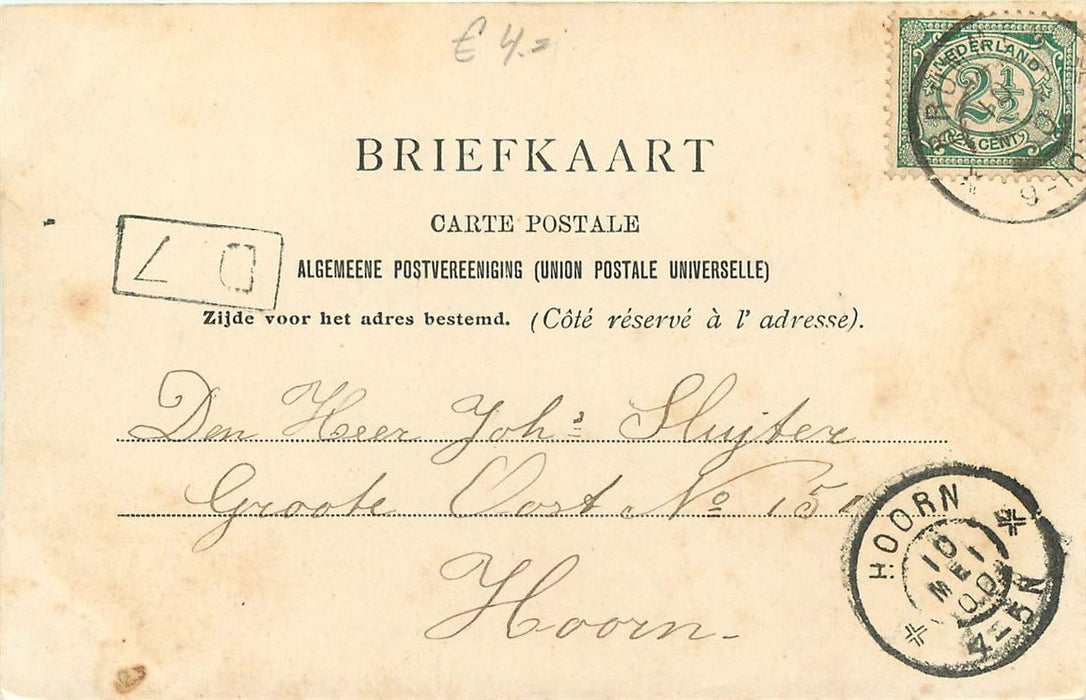 £ 4.=
NEDERLAND
2½
2½ CENT
BRIEFKAART
CARTE POSTALE
ALGEMEENE POSTVEREENIGING (UNION POSTALE UNIVERSELLE)
Zijde voor het adres bestemd. (Côté réservé à l' adresse).
Den Heer Joh.s Sluijter
Groote Oost No 15
Hoorn-
HOORN
10
MEI
00
4-5N